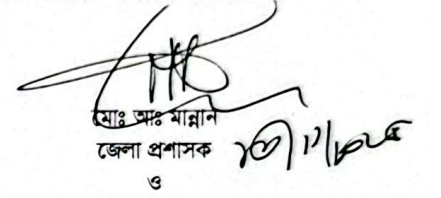 মোঃ আঃ মান্নান
জেলা প্রশাসক
ও